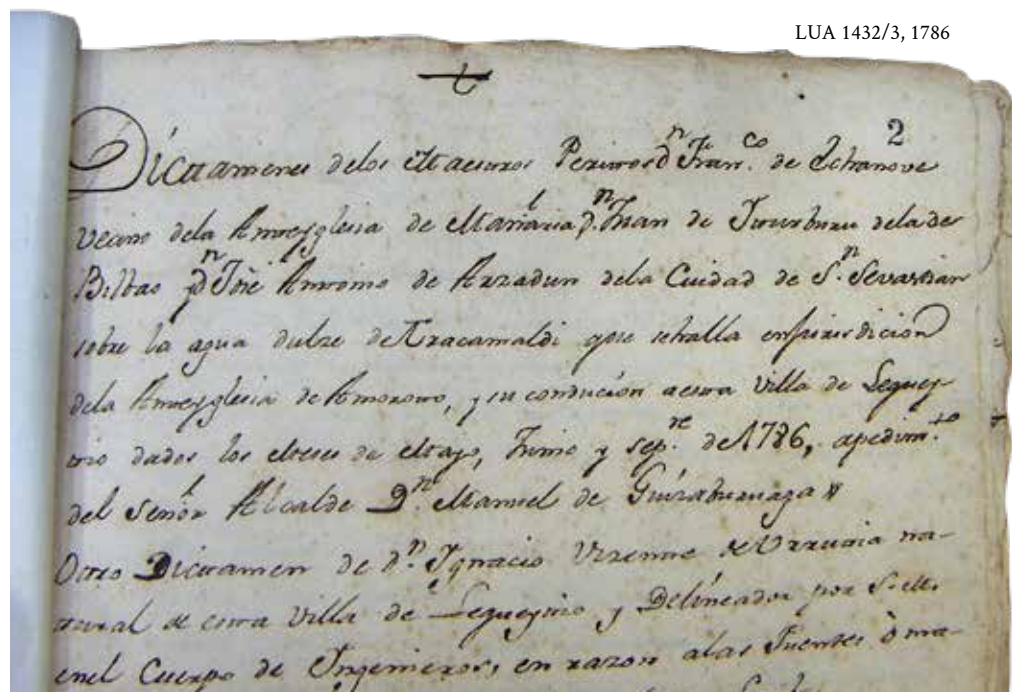 LUA 1432/3, 1786
2
Dictamenes delos Maestros Peritos dn Franco. de Echanove
vecino dela Anteyglesia de Mañaria, dn. Juan de Iturburu dela de
Bilbao y dn José Antonio de Arzadun dela Ciudad de Sn. Sevastian
sobre la agua dulze de que sehalla ensujurisdicion
dela Anteyglesia de Amoroto, y su conducion aesta Villa de Lequey-
tio dados los Meses de Mayo, Junio y Sepre. de 1786, apedimto
del Señor Alcalde Dn. Manuel de
Otro Dictamen de dn. Ygnacio Vizente de Urrutia na-
tural de esta Villa de Lequeytio y Delineador por S.M.
enel Cuerpo de Yngenieros, en razon alas Fuentes ò ma-